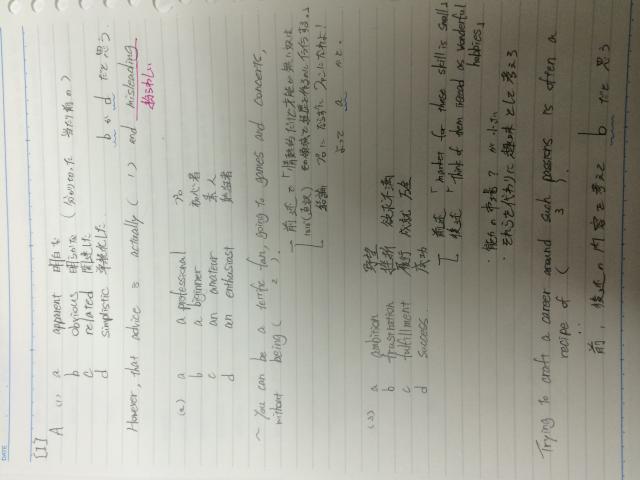 DATE
[1]
A (1) a apparent 明白な
b obvious 明らかな (分かりきった 当たり前の)
c related 関連した
d simplistic 単純化した
b か d だと思う
However, that advice is actually ( 1 ) and misleading
紛らわしい
(2) a a professional プロ
b a beginner 初心者
c an amateur 素人
d an enthusiast
~ You can be a terrific fan, going to games and concerts,
without being ( 2 ).
結論 プロにならずに ファンになれよ!
よって a かと。
(3) a ambition 野望
b frustration 挫折 欲求不満
c fulfillment 履行 成就
d success 成功
前述 「market for these skill is small」
後述 「think of them instead as wonderful
hobbies」
それらを代わりに趣味として考える
Trying to craft a career around such passions is often a
recipe of ( 3 ).
前、後述の内容を考えて b だと思う